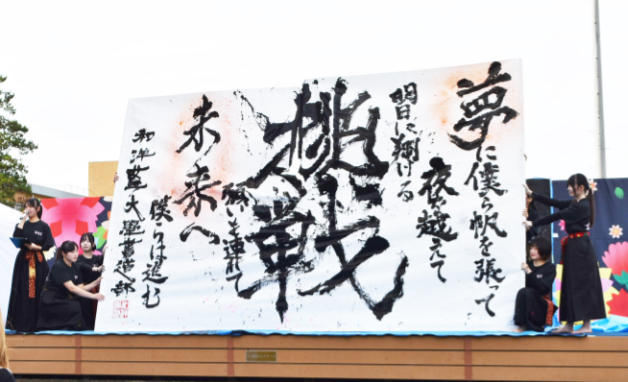 夢に僕ら帆を張って
夜を越えて
明日に翔ける
挑戦
いも連れて
未来へ
僕らは進む
和洋女子大學書道部